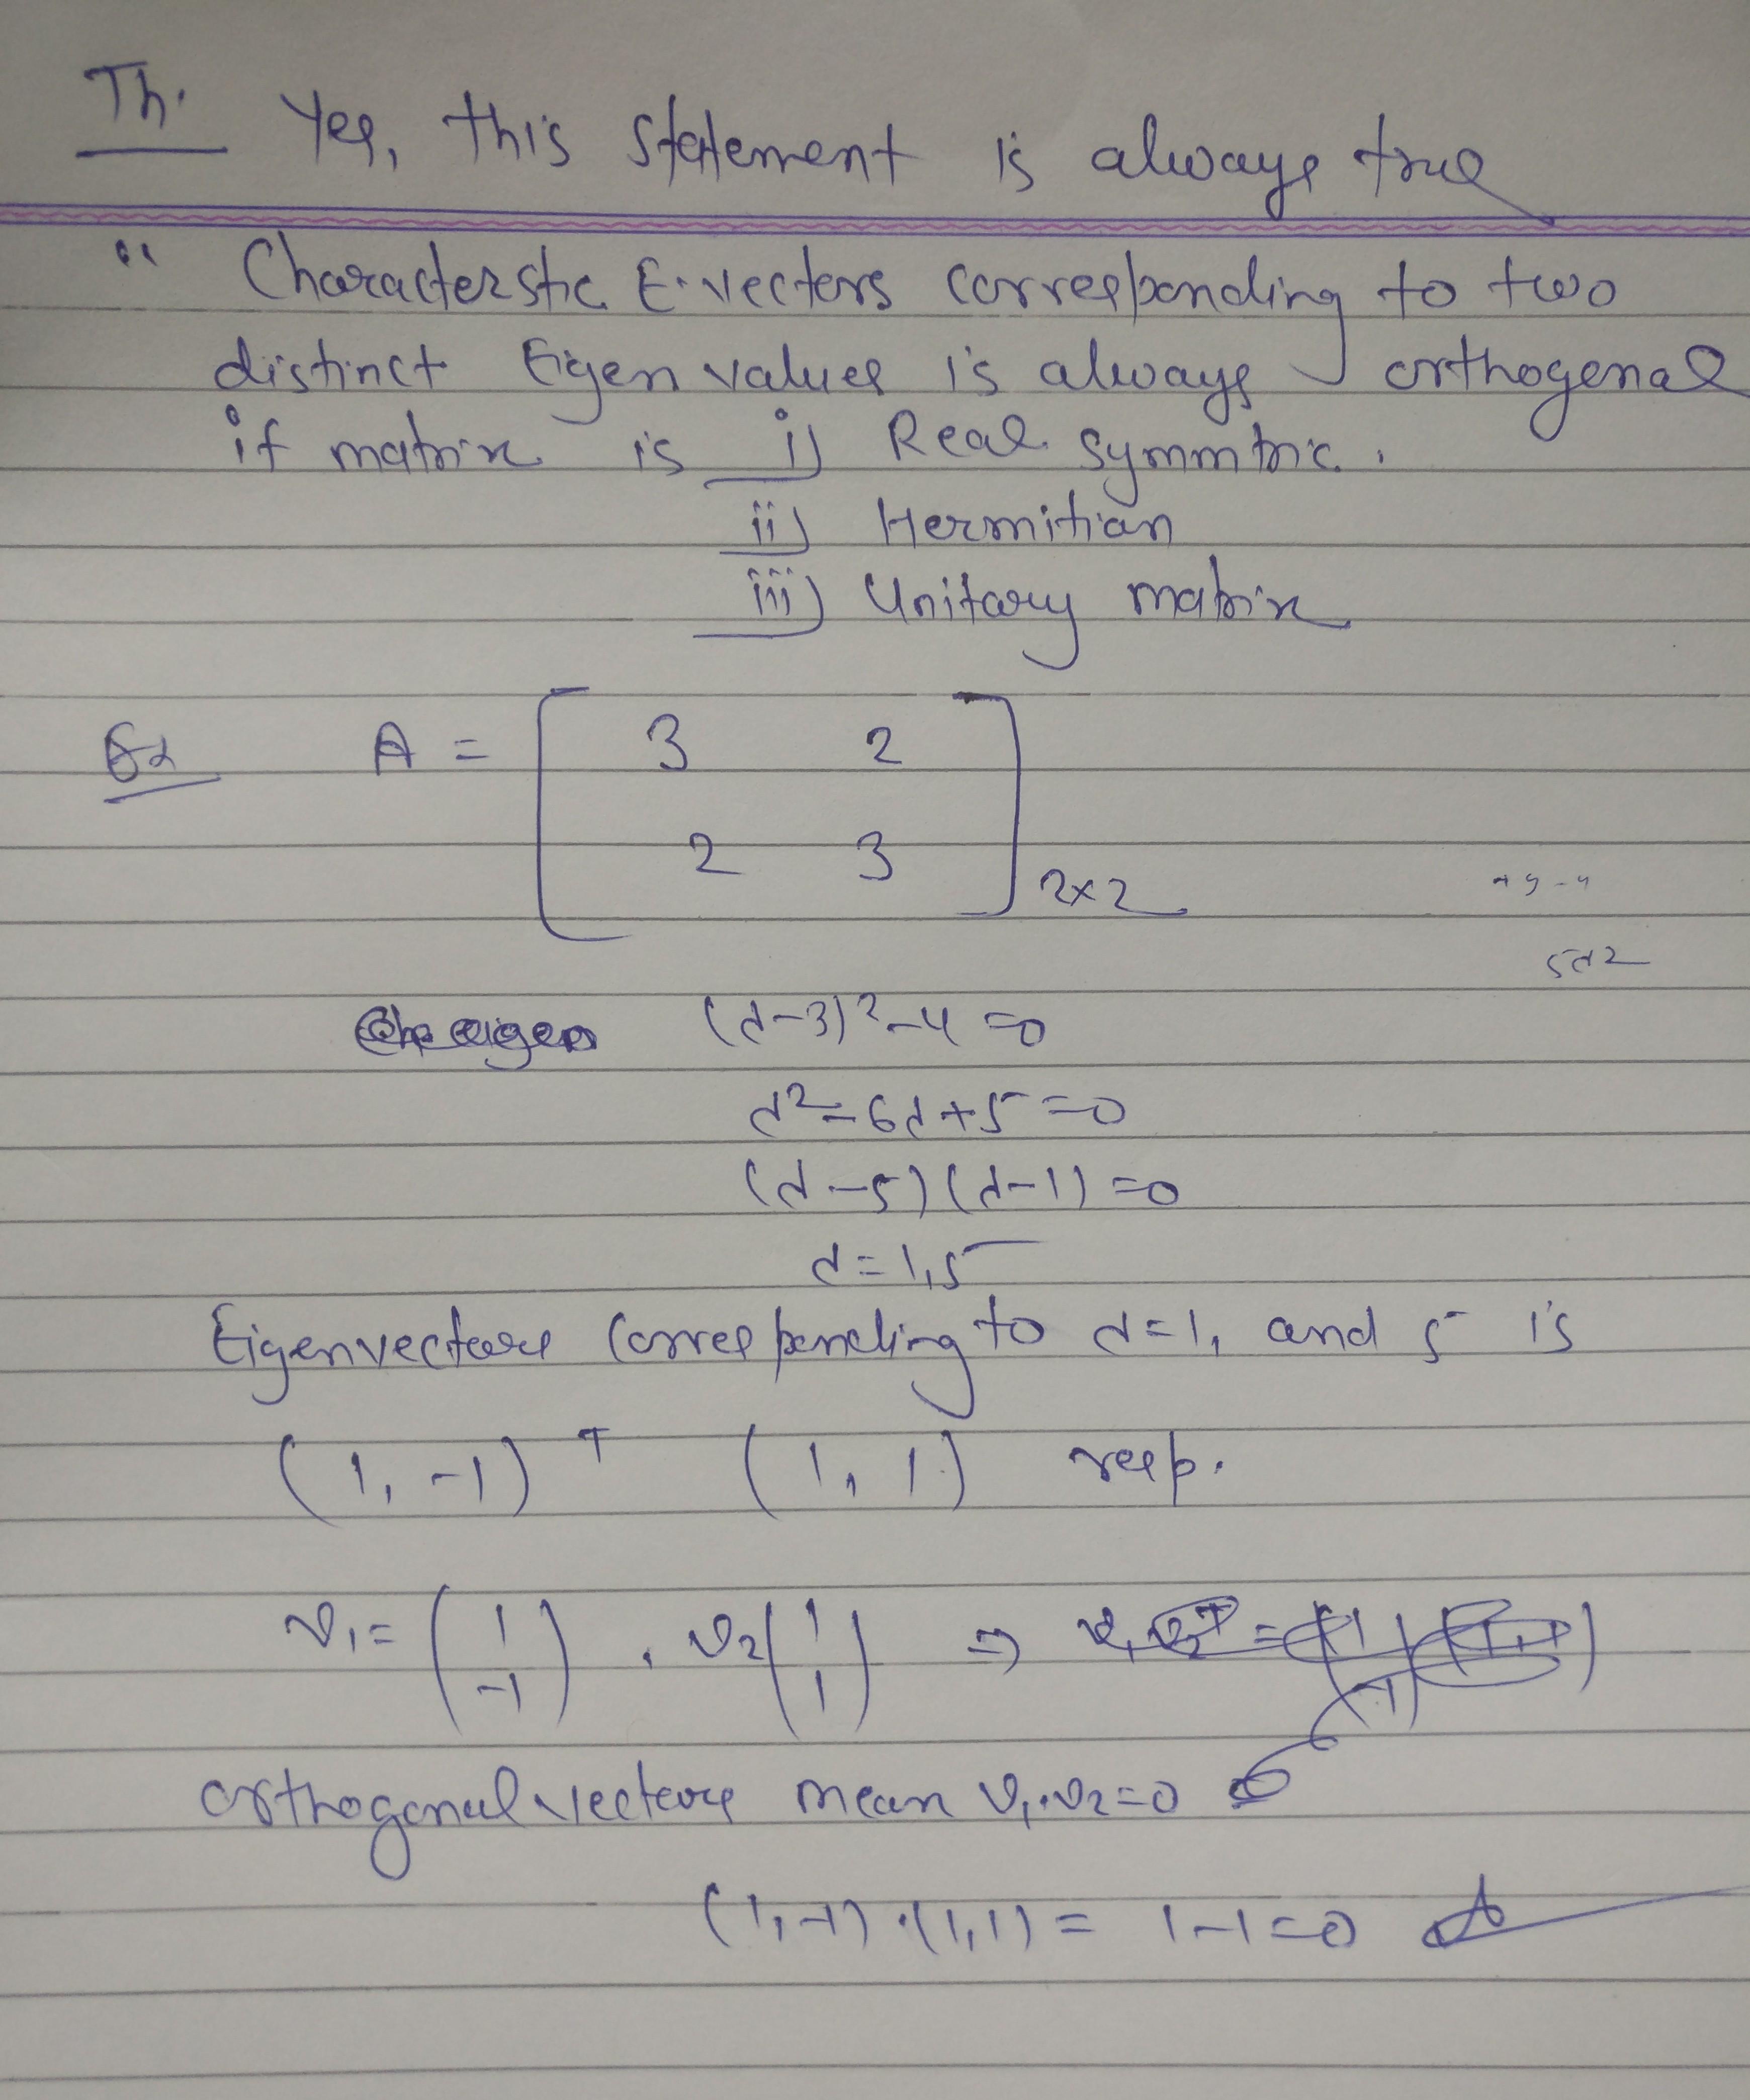 Th. Yes, this statement is always true
" Characterstic E.vectors corresponding to two
distinct Eigen values is always orthogonal
if matrix is i) Real symmtric.
ii) Hermitian
iii) Unitary matrix
Ex A = [ 3 2
2 3 ] 2×2
(λ-3)²-4=0
λ²-6λ+5=0
(λ-5)(λ-1)=0
λ=1,5
Eigenvectors corresponding to λ=1, and 5 is
(1,-1)ᵀ (1,1) resp.
v₁= (1 -1) , v₂ (1 1) ⇒
orthogonal vectors mean v₁.v₂=0
(1,-1).(1,1) = 1-1=0